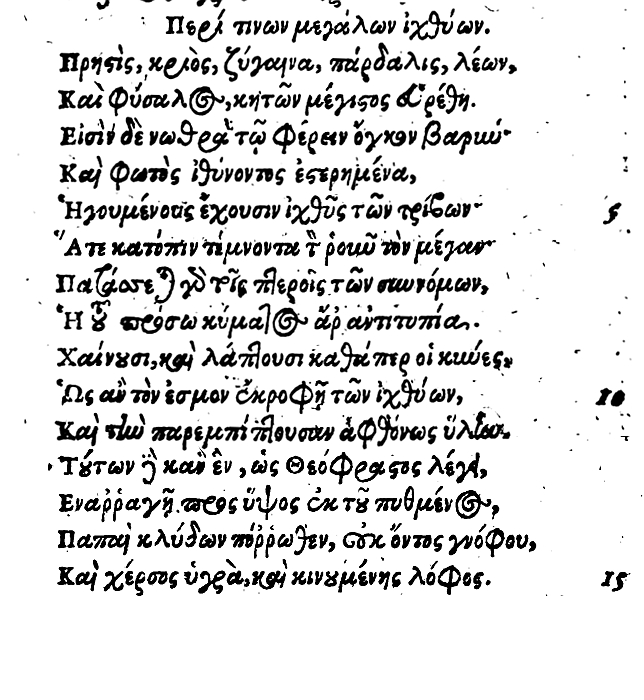 Περί τινων μεγάλων ἰχθύων.
Πρῆσις, κριὸς, ζύγαινα, πάρδαλις, λέων,
Καὶ φύσαλος, κητῶν μέγιστος εὑρέθη.
Εἰσὶν δὲ νωθρὰ τῷ φέρειν ὄγκον βαρὺν
Καὶ φωτὸς ἰθύνοντος ἐστερημένα,
Ἡγουμένους ἔχουσιν ἰχθῦς τῶν τρίβων 5
Ἅτε κατόπιν τέμνοντα τ ῥοῦν τὸν μέγαν
πτεροῖς τῶν συννόμων,
Ἢ τοῦ πρόσω κύματος ἀντιτυπία.
Χαίνουσι, καὶ λάπτουσι καθάπερ οἱ κύνες,
Ὡς ἂν τὸν ἑσμὸν ἐκροφῇ τῶν ἰχθύων, 10
Καὶ τὴν παρεμπίπτουσαν ἀφθόνως ὕλην.
Τούτων δὲ κἂν ἓν, ὡς Θεόφραστος λέγει,
Εναῤῥαγῇ πρὸς ὕψος ἐκ τοῦ πυθμένος,
Παπαὶ κλύδων πόῤῥωθεν, οὐκ ὄντος γνόφου,
Καὶ χέρσος ὑγρὰ, καὶ κινουμένης λόφος. 15